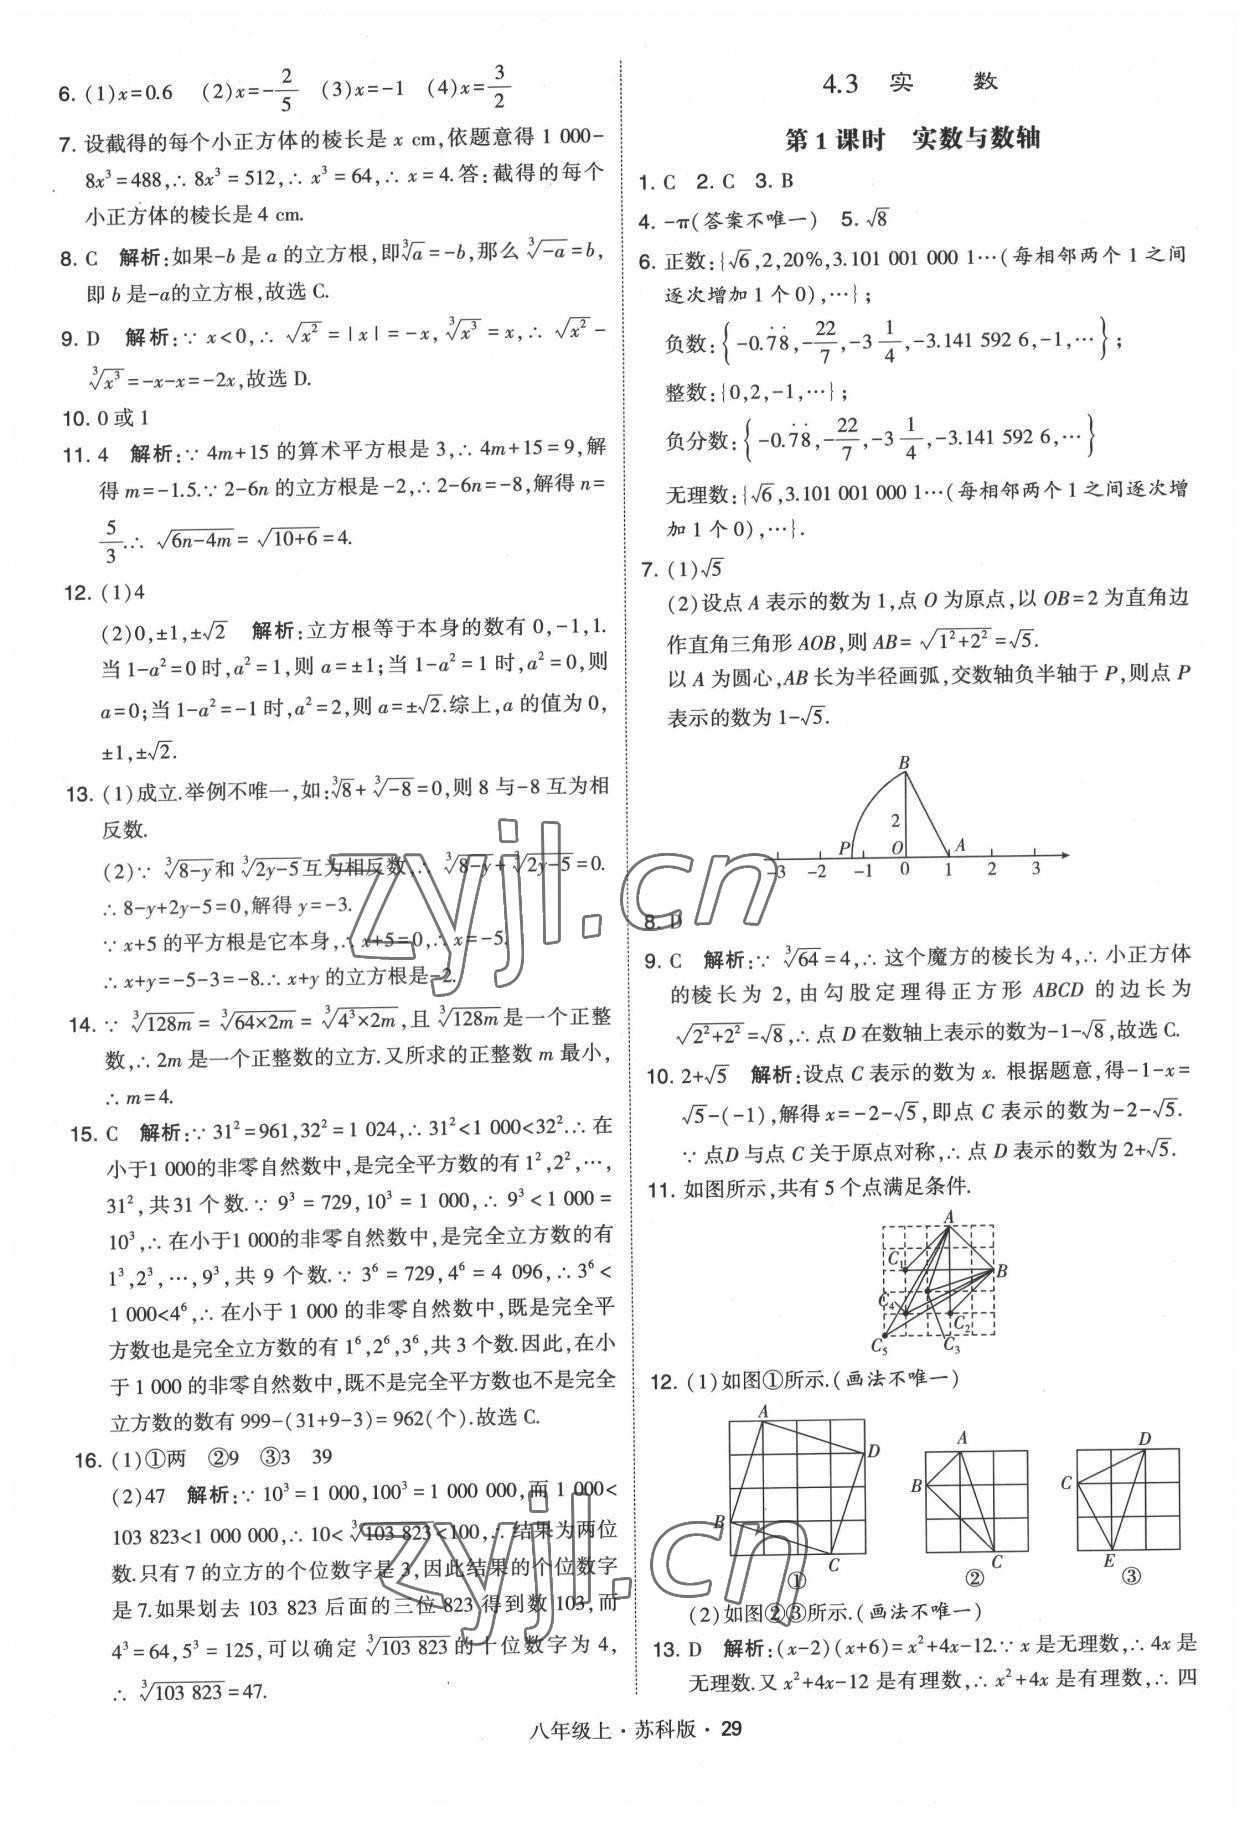 6. (1)x=0.6 (2)x=-2/5 (3)x=-1 (4)x=3/2
7. 设截得的每个小正方体的棱长是 x cm,依题意得 1 000-
8x³=488,∴ 8x³=512,∴ x³=64,∴ x=4.答:截得的每个
小正方体的棱长是 4 cm.
8. C 解析:如果-b 是 a 的立方根,即∛a=-b,那么 ∛-a=b,
即 b 是-a的立方根,故选 C.
9. D 解析:∵ x<0,∴ √x²=|x|=-x,∛x³=x,∴ √x²-
∛x³=-x-x=-2x,故选 D.
10. 0 或 1
11. 4 解析:∵ 4m+15 的算术平方根是 3,∴ 4m+15=9,解
得 m=-1.5.∵ 2-6n 的立方根是-2,∴ 2-6n=-8,解得 n=
5/3.∴ √6n-4m=√10+6=4.
12. (1)4
(2)0,±1,±√2 解析:立方根等于本身的数有 0,-1,1.
当 1-a²=0 时,a²=1,则 a=±1;当 1-a²=1 时,a²=0,则
a=0;当 1-a²=-1 时,a²=2,则 a=±√2.综上,a 的值为 0,
±1,±√2.
13. (1)成立.举例不唯一,如:∛8+∛-8=0,则 8 与-8 互为相
反数.
(2)∵ ∛8-y和∛2y-5互为相反数,∴ ∛8-y+∛2y-5=0.
∴ 8-y+2y-5=0,解得 y=-3.
∵ x+5 的平方根是它本身,∴ x+5=0,∴ x=-5.
∴ x+y=-5-3=-8.∴ x+y 的立方根是-2.
14. ∵ ∛128m=∛64×2m=∛4³×2m,且∛128m是一个正整
数,∴ 2m 是一个正整数的立方.又所求的正整数 m 最小,
∴ m=4.
15. C 解析:∵ 31²=961,32²=1 024,∴ 31²<1 000<32².∴ 在
小于1 000的非零自然数中,是完全平方数的有 1²,2²,…,
31²,共31 个数.∵ 9³=729,10³=1 000,∴ 9³<1 000=
10³,∴ 在小于1 000的非零自然数中,是完全立方数的有
1³,2³,…,9³,共 9 个数.∵ 3⁶=729,4⁶=4 096,∴ 3⁶<
1 000<4⁶,∴ 在小于 1 000 的非零自然数中,既是完全平
方数也是完全立方数的有 1⁶,2⁶,3⁶,共 3 个数.因此,在小
于 1 000 的非零自然数中,既不是完全平方数也不是完全
立方数的数有 999-(31+9-3)=962(个).故选 C.
16. (1)①两 ②9 ③3 39
(2)47 解析:∵ 10³=1 000,100³=1 000 000,而 1 000<
103 823<1 000 000,∴ 10<∛103 823<100,∴ 结果为两位
数.只有 7 的立方的个位数字是 3,因此结果的个位数字
是 7.如果划去 103 823 后面的三位 823 得到数 103,而
4³=64,5³=125,可以确定 ∛103 823的十位数字为 4,
∴ ∛103 823=47.
4.3 实 数
第 1 课时 实数与数轴
1. C 2. C 3. B
4. -π(答案不唯一) 5. √8
6. 正数:{√6,2,20%,3.101 001 000 1…(每相邻两个 1 之间
逐次增加 1 个 0),…};
负数:{-0.7̇8̇,-22/7,-3 1/4,-3.141 592 6,-1,…};
整数:{0,2,-1,…};
负分数:{-0.7̇8̇,-22/7,-3 1/4,-3.141 592 6,…}
无理数:{√6,3.101 001 000 1…(每相邻两个 1 之间逐次增
加 1 个 0),…}.
7. (1)√5
(2)设点 A 表示的数为 1,点 O 为原点,以 OB=2 为直角边
作直角三角形 AOB,则 AB=√1²+2²=√5.
以 A 为圆心,AB 长为半径画弧,交数轴负半轴于 P,则点 P
表示的数为 1-√5.
B
2
P O A
-3 -2 -1 0 1 2 3
8. D
9. C 解析:∵ ∛64=4,∴ 这个魔方的棱长为 4,∴ 小正方体
的棱长为 2,由勾股定理得正方形 ABCD 的边长为
√2²+2²=√8,∴ 点 D 在数轴上表示的数为-1-√8,故选 C.
10. 2+√5 解析:设点 C 表示的数为 x. 根据题意,得-1-x=
√5-(-1),解得 x=-2-√5,即点 C 表示的数为-2-√5.
∵ 点D 与点 C 关于原点对称,∴ 点 D 表示的数为 2+√5.
11. 如图所示,共有 5 个点满足条件.
A
C₁ B
C₄ C₂
C₅ C₃
12. (1)如图①所示.(画法不唯一)
A D B C ①
A B C ②
D C E ③
(2)如图②③所示.(画法不唯一)
13. D 解析:(x-2)(x+6)=x²+4x-12.∵ x 是无理数,∴ 4x 是
无理数.又 x²+4x-12 是有理数,∴ x²+4x 是有理数,∴ 四
八年级上·苏科版·29
zyjl.cn
zyjl.cn